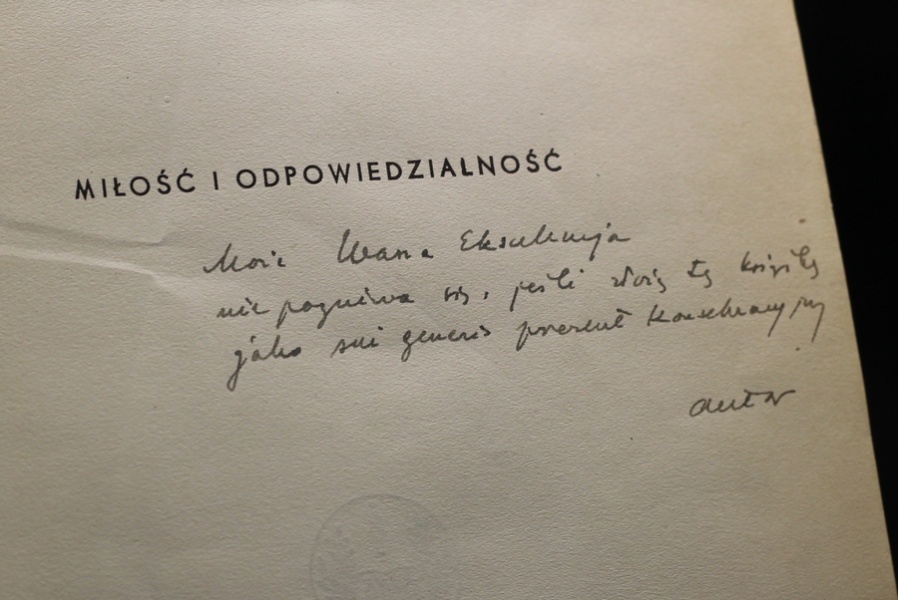 MIŁOŚĆ I ODPOWIEDZIALNOŚĆ
Może Wasza Ekscelencja
nie pogniewa się, jeśli złożę tę książkę
jako sui generis prezent konsekracyjny
autor